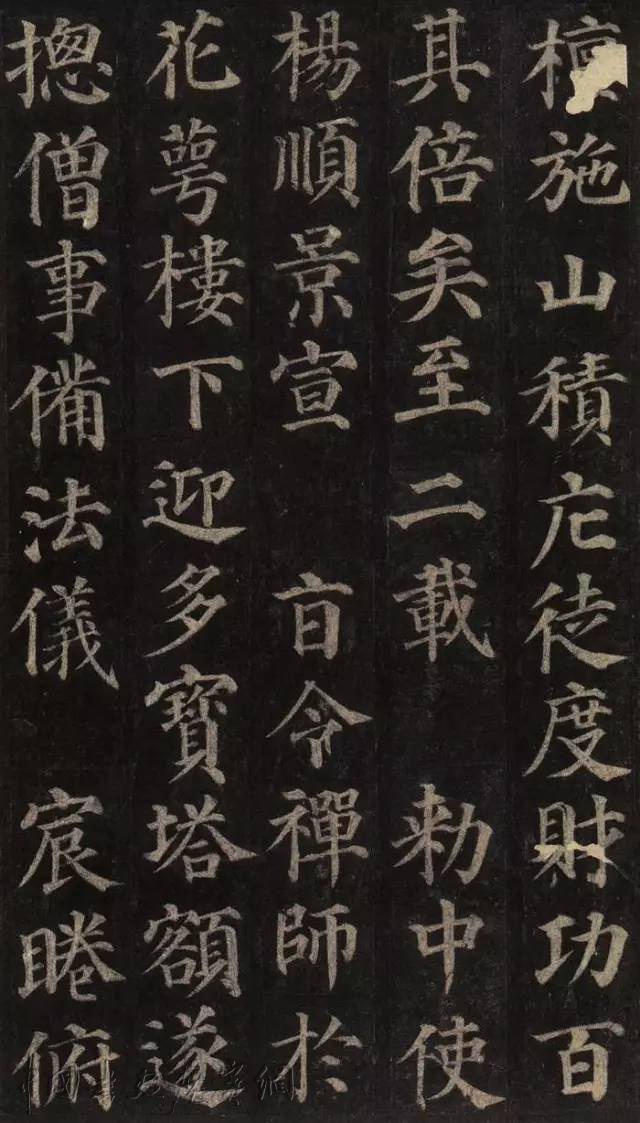 檀施山積庀徒度財功百
其倍矣至二載 勑中使
楊順景宣 㫖令禪師於
花萼樓下迎多寶塔額遂
揔僧事俻法儀 宸睠俯